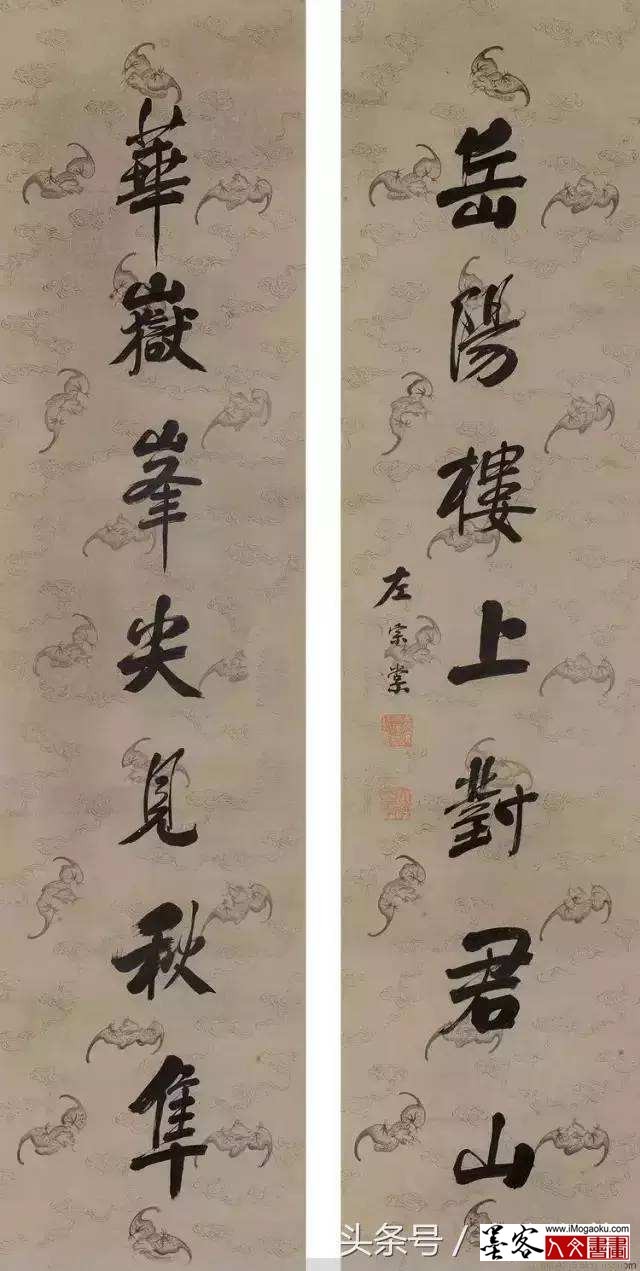 岳陽樓上對君山
左宗棠
華嶽峯尖見秋隼
头条号 /
墨客
www.iMogaoku.com
人文書畫